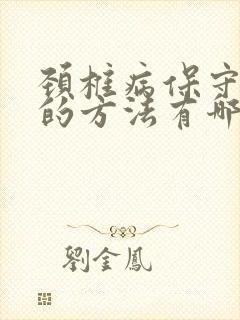 颈椎病保守
的方法有哪
劉金鳳